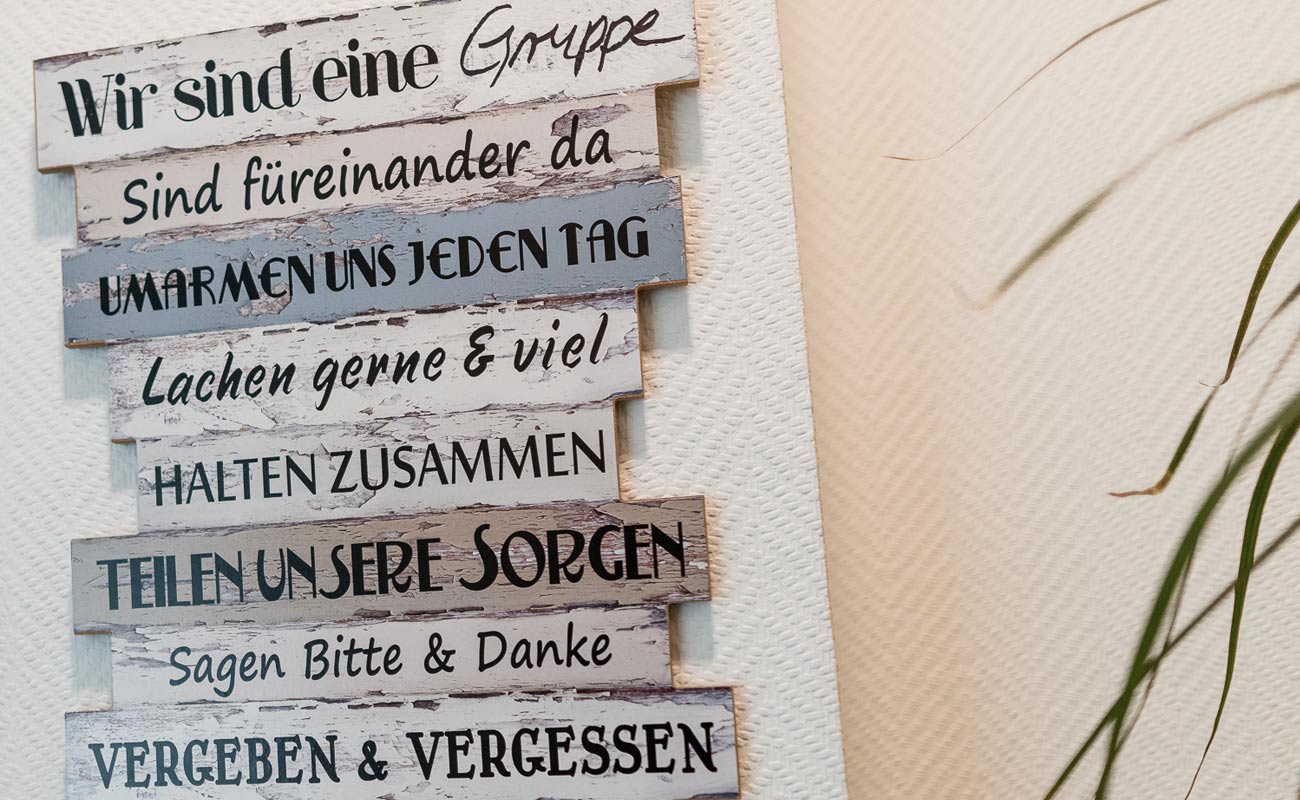 Wir sind eine Gruppe
Sind füreinander da
UMARMEN UNS JEDEN TAG
Lachen gerne & viel
HALTEN ZUSAMMEN
TEILEN UNSERE SORGEN
Sagen Bitte & Danke
VERGEBEN & VERGESSEN